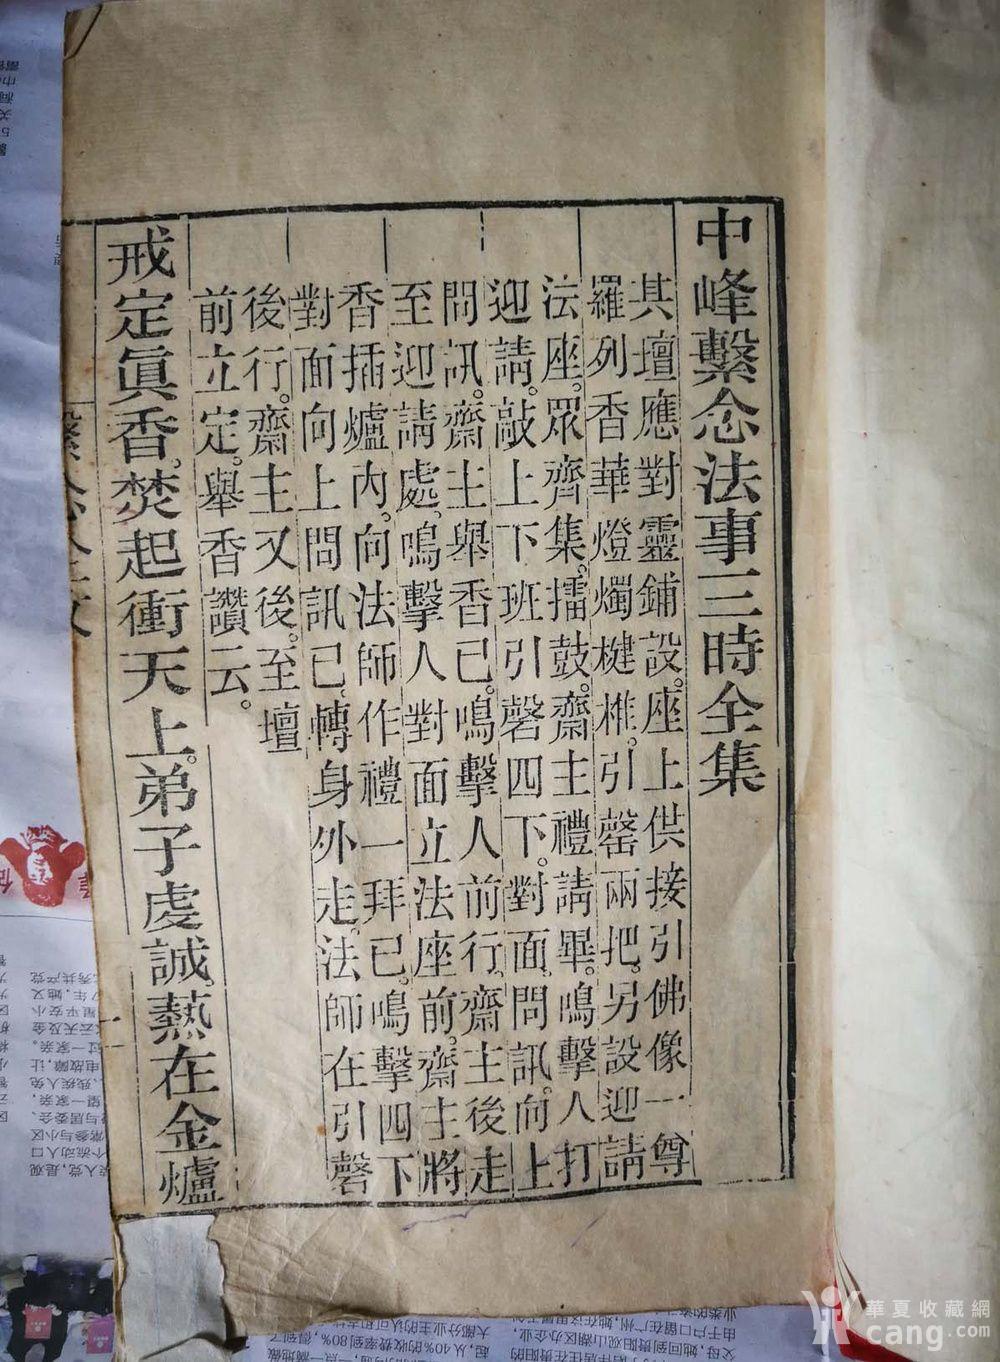 中峰繫念法事三時全集
其壇應對靈鋪設。座上供接引佛像一尊
羅列香華燈燭楗椎。引罄兩把。另設迎請
法座。眾齊集。擂鼓。齋主禮請畢。鳴擊人打
迎請。敲上下班引磬四下。對面問訊。向上
問訊。齋主舉香已。鳴擊人前行。齋主後走
至迎請處。鳴擊人對面立法座前。齋主將
香插爐內。向法師作禮一拜已。鳴擊四下
對面向上問訊已。轉身外走。法師在引磬
後行。齋主又後。至壇
前立定。舉香讚云。
戒定眞香。焚起衝天上。弟子虔誠。爇在金爐
華夏收藏網
cang.com